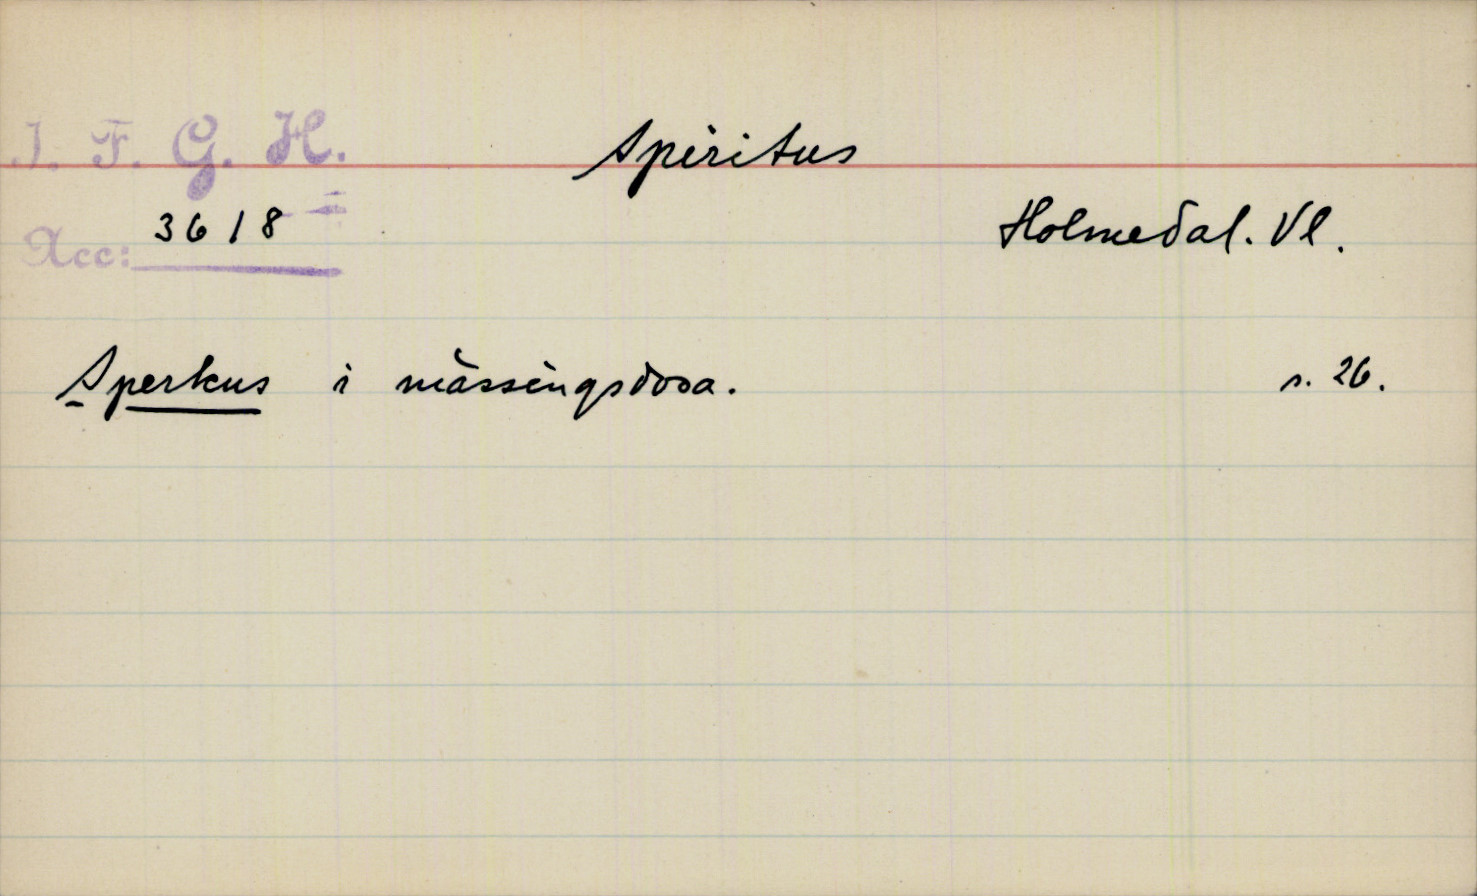 I. F. G. H.
Spiritus
3618
Acc:
Holmedal. Vl.
Sperkus i mässingsdosa.
s. 26.